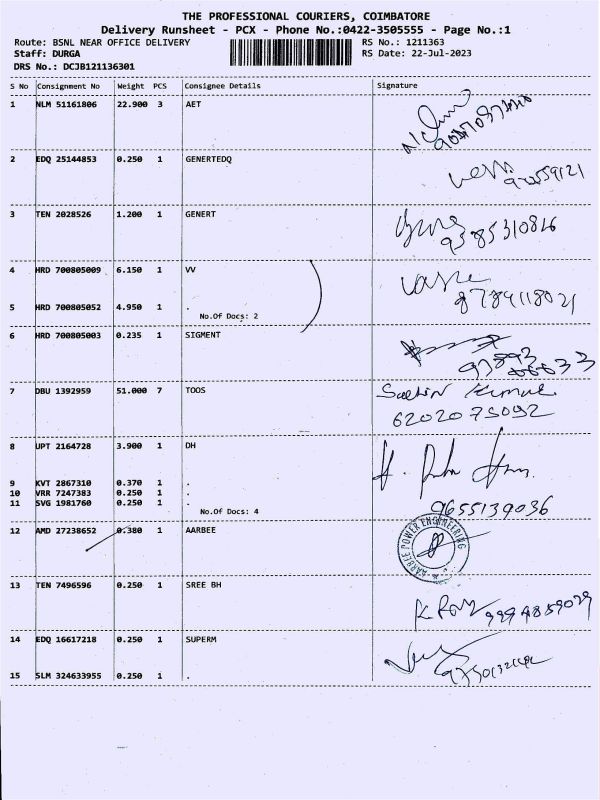 THE PROFESSIONAL COURIERS, COIMBATORE
Delivery Runsheet - PCX - Phone No.:0422-3505555 - Page No.:1
Route: BSNL NEAR OFFICE DELIVERY RS No.: 1211363
Staff: DURGA RS Date: 22-Jul-2023
DRS No.: DCJB121136301
S No Consignment No Weight PCS Consignee Details Signature
1 NLM 51161806 22.900 3 AET
2 EDQ 25144853 0.250 1 GENERTEDQ
3 TEN 2028526 1.200 1 GENERT
9385310816
4 HRD 700805009 6.150 1 VV
8789118021
5 HRD 700805052 4.950 1 .
No.Of Docs: 2
6 HRD 700805003 0.235 1 SIGMENT
7 DBU 1392959 51.000 7 TOOS
6202075092
8 UPT 2164728 3.900 1 DH
9 KVT 2867310 0.370 1 .
10 VRR 7247383 0.250 1 .
11 SVG 1981760 0.250 1 .
No.Of Docs: 4
9655139036
12 AMD 27238652 0.380 1 AARBEE
POWER ENGINEERING
13 TEN 7496596 0.250 1 SREE BH
9994859029
14 EDQ 16617218 0.250 1 SUPERM
15 SLM 324633955 0.250 1 .